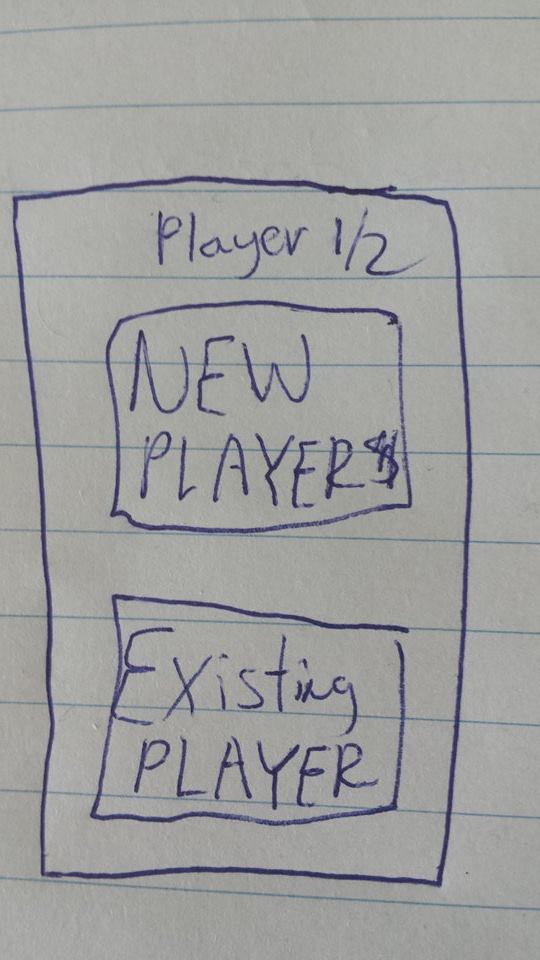 Player 1/2
NEW
PLAYER
Existing
PLAYER